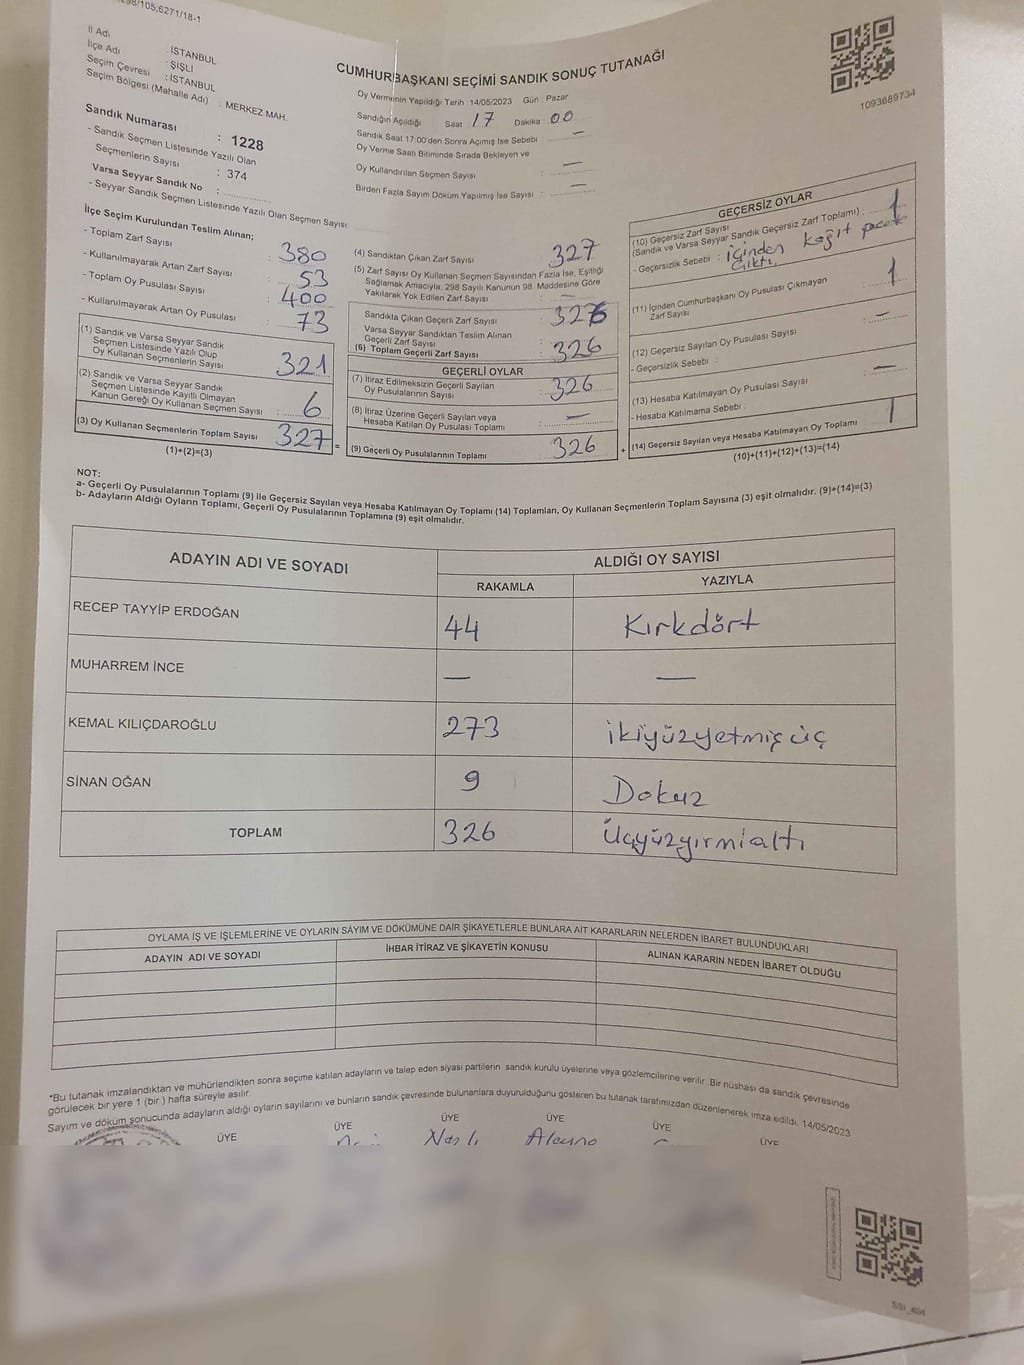 298/105,6271/18-1
İl Adı : İSTANBUL
İlçe Adı : ŞİŞLİ
Seçim Çevresi : İSTANBUL
Seçim Bölgesi (Mahalle Adı) : MERKEZ MAH.
Sandık Numarası : 1228
- Sandık Seçmen Listesinde Yazılı Olan
Seçmenlerin Sayısı : 374
Varsa Seyyar Sandık No :
- Seyyar Sandık Seçmen Listesinde Yazılı Olan Seçmen Sayısı :
CUMHURBAŞKANI SEÇİMİ SANDIK SONUÇ TUTANAĞI
Oy Vermenin Yapıldığı Tarih 14/05/2023 Gün : Pazar
Sandığın Açıldığı Saat : 17 Dakika : 00
Sandık Saat 17:00'den Sonra Açımış İse Sebebi : —
Oy Verme Saati Bitiminde Sırada Bekleyen ve
Oy Kullandırılan Seçmen Sayısı : —
Birden Fazla Sayım Döküm Yapılmış İse Sayısı : —
1093689734
İlçe Seçim Kurulundan Teslim Alınan;
- Toplam Zarf Sayısı : 380
- Kullanılmayarak Artan Zarf Sayısı : 53
- Toplam Oy Pusulası Sayısı : 400
- Kullanılmayarak Artan Oy Pusulası : 73
(1) Sandık ve Varsa Seyyar Sandık
Seçmen Listesinde Yazılı Olup
Oy Kullanan Seçmenlerin Sayısı : 321
(2) Sandık ve Varsa Seyyar Sandık
Seçmen Listesinde Kayıtlı Olmayan
Kanun Gereği Oy Kullanan Seçmen Sayısı : 6
(3) Oy Kullanan Seçmenlerin Toplam Sayısı 327 =
(1)+(2)=(3)
(4) Sandıktan Çıkan Zarf Sayısı : 327
(5) Zarf Sayısı Oy Kullanan Seçmen Sayısından Fazla İse, Eşitliği
Sağlamak Amacıyla; 298 Sayılı Kanunun 98. Maddesine Göre
Yakılarak Yok Edilen Zarf Sayısı : —
Sandıkta Çıkan Geçerli Zarf Sayısı : 326
Varsa Seyyar Sandıktan Teslim Alınan
Geçerli Zarf Sayısı :
(6) Toplam Geçerli Zarf Sayısı : 326
GEÇERLİ OYLAR
(7) İtiraz Edilmeksizin Geçerli Sayılan
Oy Pusulalarının Sayısı : 326
(8) İtiraz Üzerine Geçerli Sayılan veya
Hesaba Katılan Oy Pusulası Toplamı : —
(9) Geçerli Oy Pusulalarının Toplamı 326 +
GEÇERSİZ OYLAR
(10) Geçersiz Zarf Sayısı
(Sandık ve Varsa Seyyar Sandık Geçersiz Zarf Toplamı) : 1
- Geçersizlik Sebebi : İçinden kağıt
çıktı.
(11) İçinden Cumhurbaşkanı Oy Pusulası Çıkmayan
Zarf Sayısı : 1
(12) Geçersiz Sayılan Oy Pusulası Sayısı : —
- Geçersizlik Sebebi :
(13) Hesaba Katılmayan Oy Pusulası Sayısı : —
- Hesaba Katılmama Sebebi :
(14) Geçersiz Sayılan veya Hesaba Katılmayan Oy Toplamı 1
(10)+(11)+(12)+(13)=(14)
NOT:
a- Geçerli Oy Pusulalarının Toplamı (9) ile Geçersiz Sayılan veya Hesaba Katılmayan Oy Toplamı (14) Toplamları, Oy Kullanan Seçmenlerin Toplam Sayısına (3) eşit olmalıdır. (9)+(14)=(3)
b- Adayların Aldığı Oyların Toplamı, Geçerli Oy Pusulalarının Toplamına (9) eşit olmalıdır.
ADAYIN ADI VE SOYADI ALDIĞI OY SAYISI
RAKAMLA YAZIYLA
RECEP TAYYİP ERDOĞAN 44 Kırkdört
MUHARREM İNCE — —
KEMAL KILIÇDAROĞLU 273 ikiyüzyetmişüç
SİNAN OĞAN 9 Dokuz
TOPLAM 326 Üçyüzyirmialtı
OYLAMA İŞ VE İŞLEMLERİNE VE OYLARIN SAYIM VE DÖKÜMÜNE DAİR ŞİKAYETLERLE BUNLARA AİT KARARLARIN NELERDEN İBARET BULUNDUKLARI
ADAYIN ADI VE SOYADI İHBAR İTİRAZ VE ŞİKAYETİN KONUSU ALINAN KARARIN NEDEN İBARET OLDUĞU
*Bu tutanak imzalandıktan ve mühürlendikten sonra seçime katılan adayların ve talep eden siyasi partilerin sandık kurulu üyelerine veya gözlemcilerine verilir. Bir nüshası da sandık çevresinde
görülecek bir yere 1 (bir ) hafta süreyle asılır.
Sayım ve döküm sonucunda adayların aldığı oyların sayılarını ve bunların sandık çevresinde bulunanlara duyurulduğunu gösteren bu tutanak tarafımızdan düzenlenerek imza edildi. 14/05/2023
ÜYE ÜYE ÜYE ÜYE ÜYE ÜYE
Nazlı
SSI_404